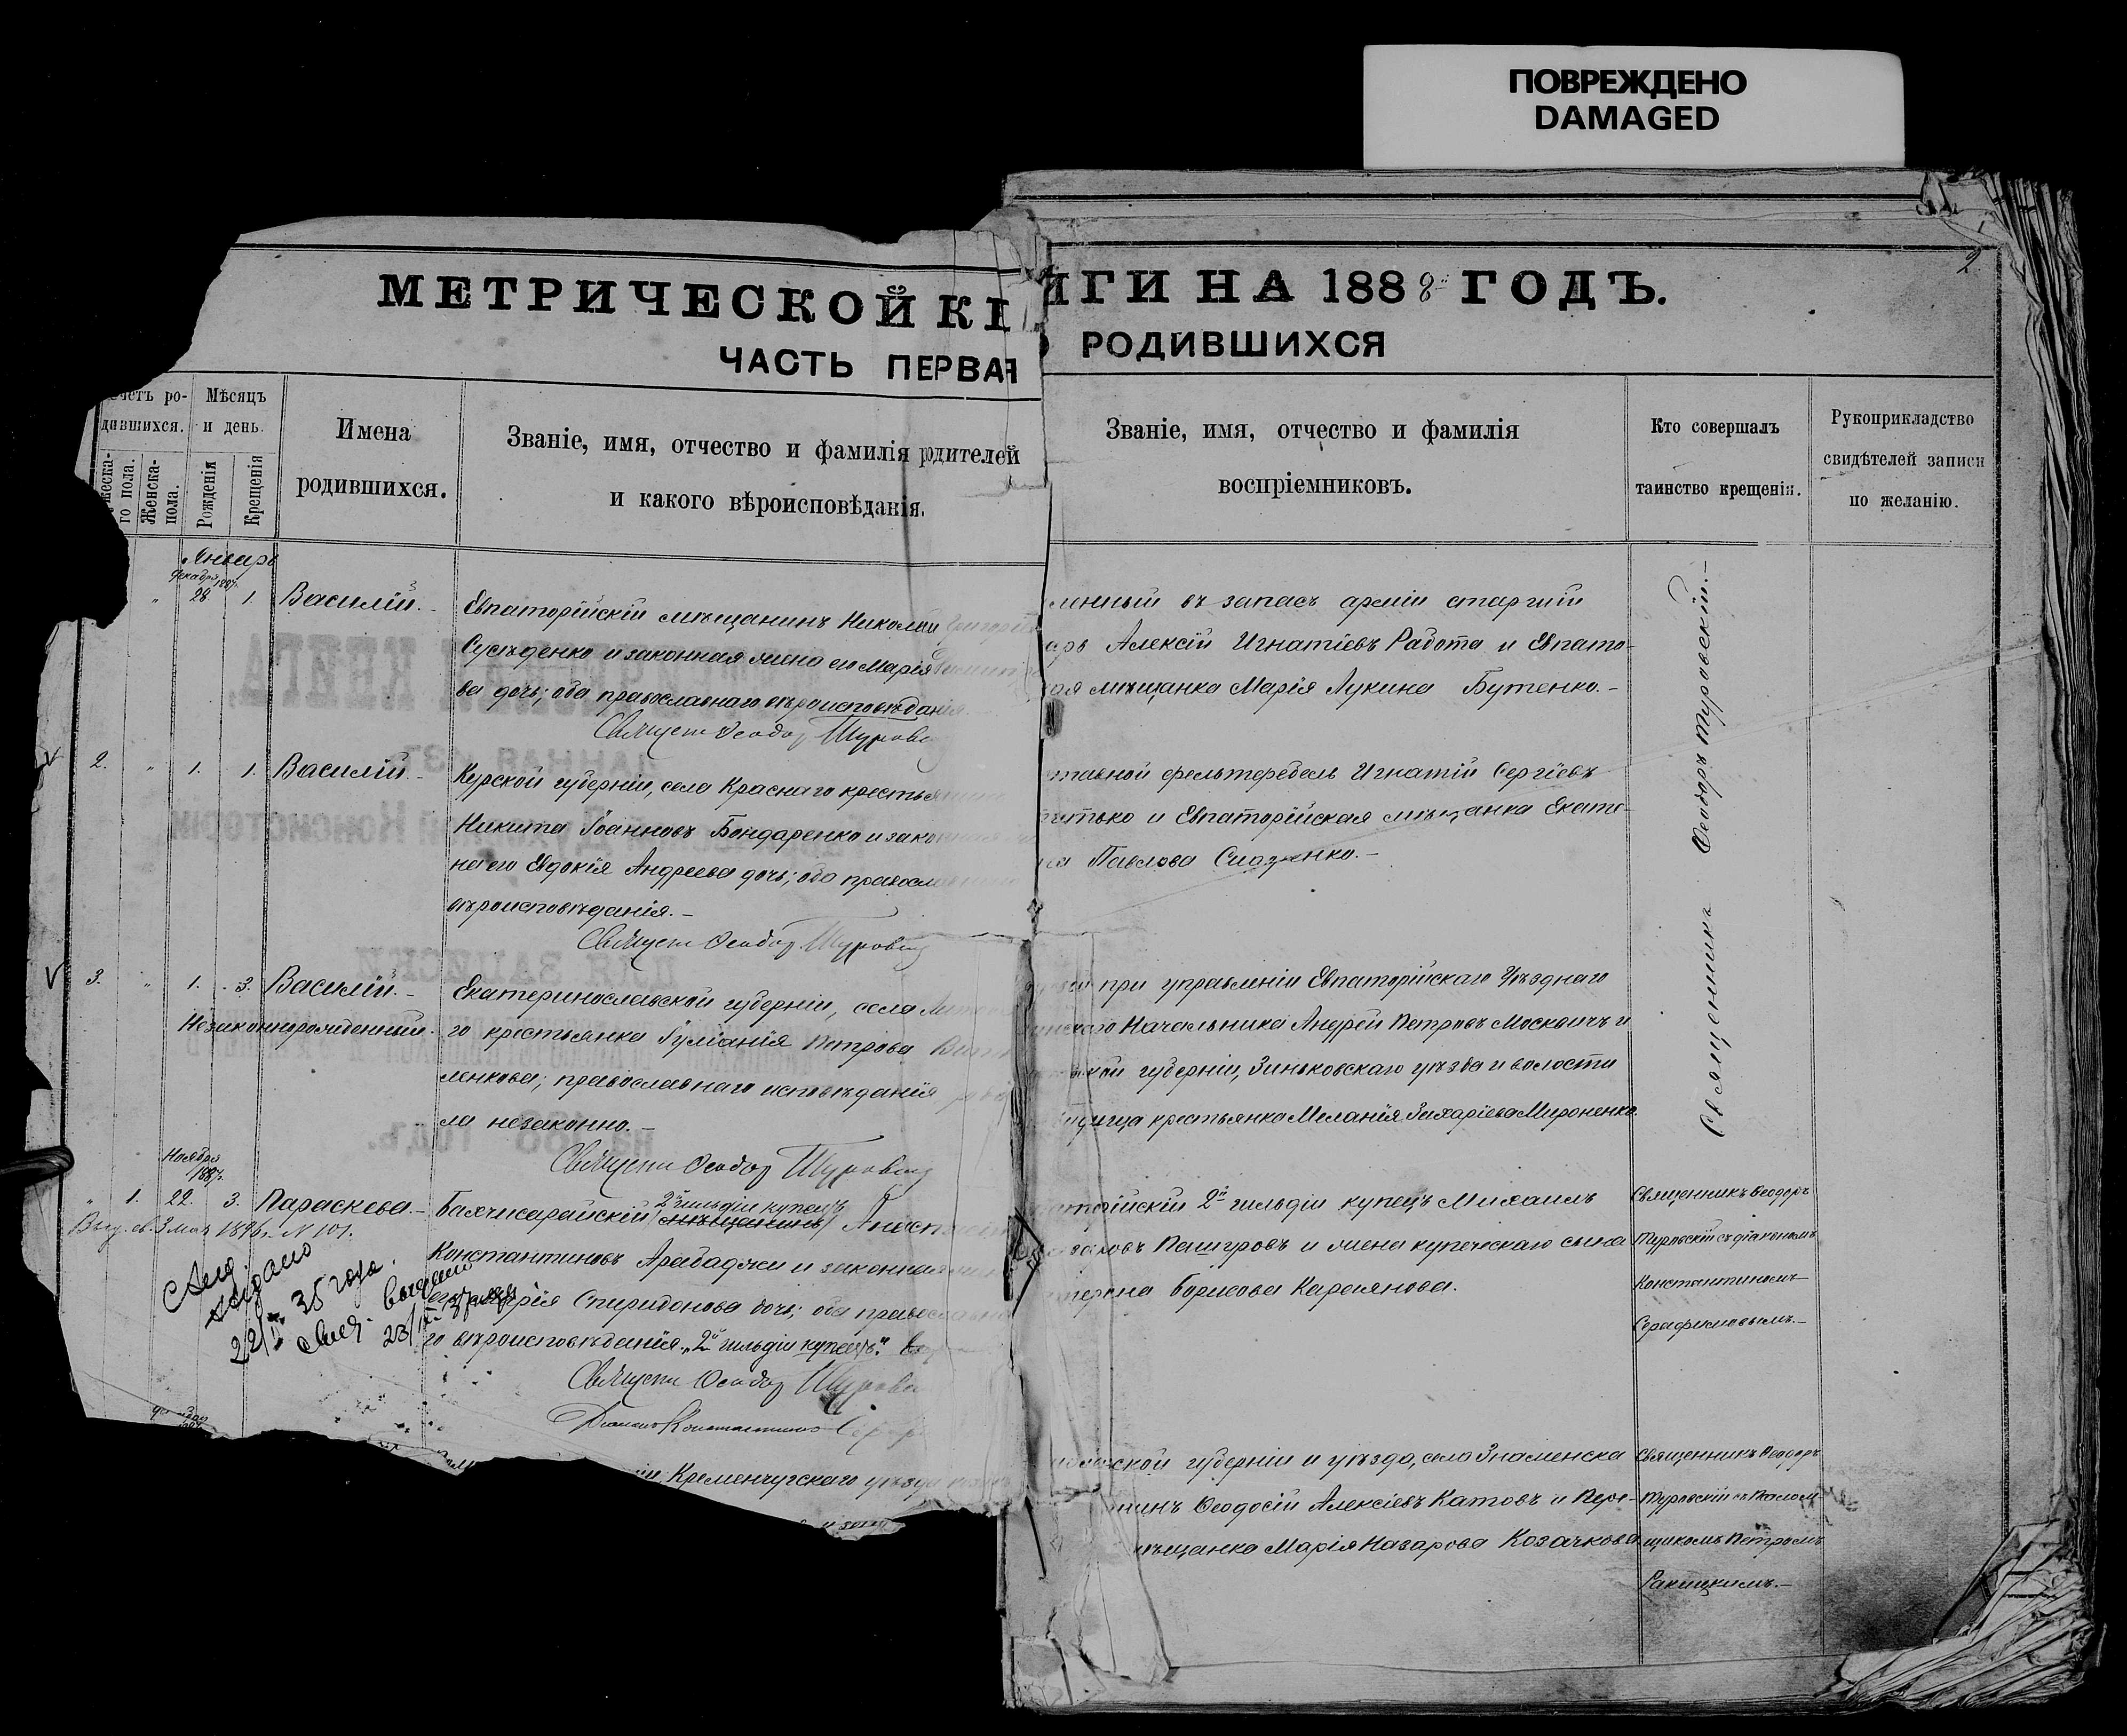 ПОВРЕЖДЕНО
DAMAGED
2
МЕТРИЧЕСКОЙ КІ
ИГИ НА 1888 ГОДЪ.
ЧАСТЬ ПЕРВАЯ
РОДИВШИХСЯ
четъ ро-
дившихся.
Мѣсяцъ
и день.
жеска-
го пола.
Женска-
пола.
Рожденія
Крещенія
Имена
родившихся.
Званіе, имя, отчество и фамилія родителей
и какого вѣроисповѣданія.
Званіе, имя, отчество и фамилія
воспріемниковъ.
Кто совершалъ
таинство крещенія.
Рукоприкладство
свидѣтелей записи
по желанію.
Январь
Декабря 1887г.
" 28. 1. Василій.-
Евпаторійскій мѣщанинъ Николай Григорі
Сусѣденко и законная жена его Марія
ва дочь; оба православнаго вѣроисповѣданія.
Священ Ѳеодор Туровс
нный въ запасъ арміи старшій
арь Алексій Игнатіевъ Работа и Евпато-
ая мѣщанка Марія Лукина Бутенко.-
Священникъ Ѳеодоръ Туровскій.-
2. " 1. 1. Василій.-
Курской губерніи, села Краснаго крестья
Никита Іоанновъ Бондаренко и зако
на его Евдокія Андреева дочь; оба правосла
вѣроисповѣданія.-
Священ Ѳеодор Туровс
тавной фельтфебель Игнатій Сергіевъ
тько и Евпаторійская мѣщанка Екате-
на Павлова
3. " 1. 3. Василій.-
Незаконнорожденный.
Екатеринославской губерніи, села
го крестьянка Іуліанія Петрова
ленкова; православнаго исповѣданія
ла незаконно.-
Священ Ѳеодор Туровс
при управленіи Евпаторійскаго Уѣзднаго
инскаго Начальника Андрей Петровъ Москвичъ и
ской губерніи, Зиньковскаго уѣзда и волости
крестьянка Меланія Захаріева Мироненко.
Ноября
1887г.
" 1. 22. 3. Параскева.-
Выд. св. 3 мая 1896г. N 101.
выдано
35 года.
выдано
Бахчисарайскій 2й гильдіи купецъ
мѣщанинъ
Константиновъ Арабаджи и законная
Спиридонова дочь; оба правосла
го вѣроисповѣданія. "2й гильдіи купецъ"
Священ Ѳеодор Турова
Діаконъ Константинъ Сер
торійскій 2й гильдіи купецъ Михаилъ
Пашуровъ и жена купеческаго сына
терина Борисова
Священникъ Ѳеодоръ
Туровскій съ діакономъ
Константиномъ
Серафимовымъ.-
Кременчугскаго уѣзда
ской губерніи и уѣзда, села Знаменска
нинъ Ѳеодосій Алексіевъ Катовъ и Пере-
мѣщанка Марія Назарова Козачкова
Священникъ Ѳеодоръ
Туровскій съ Псалом-
щикомъ Петромъ
Ракицкимъ.-